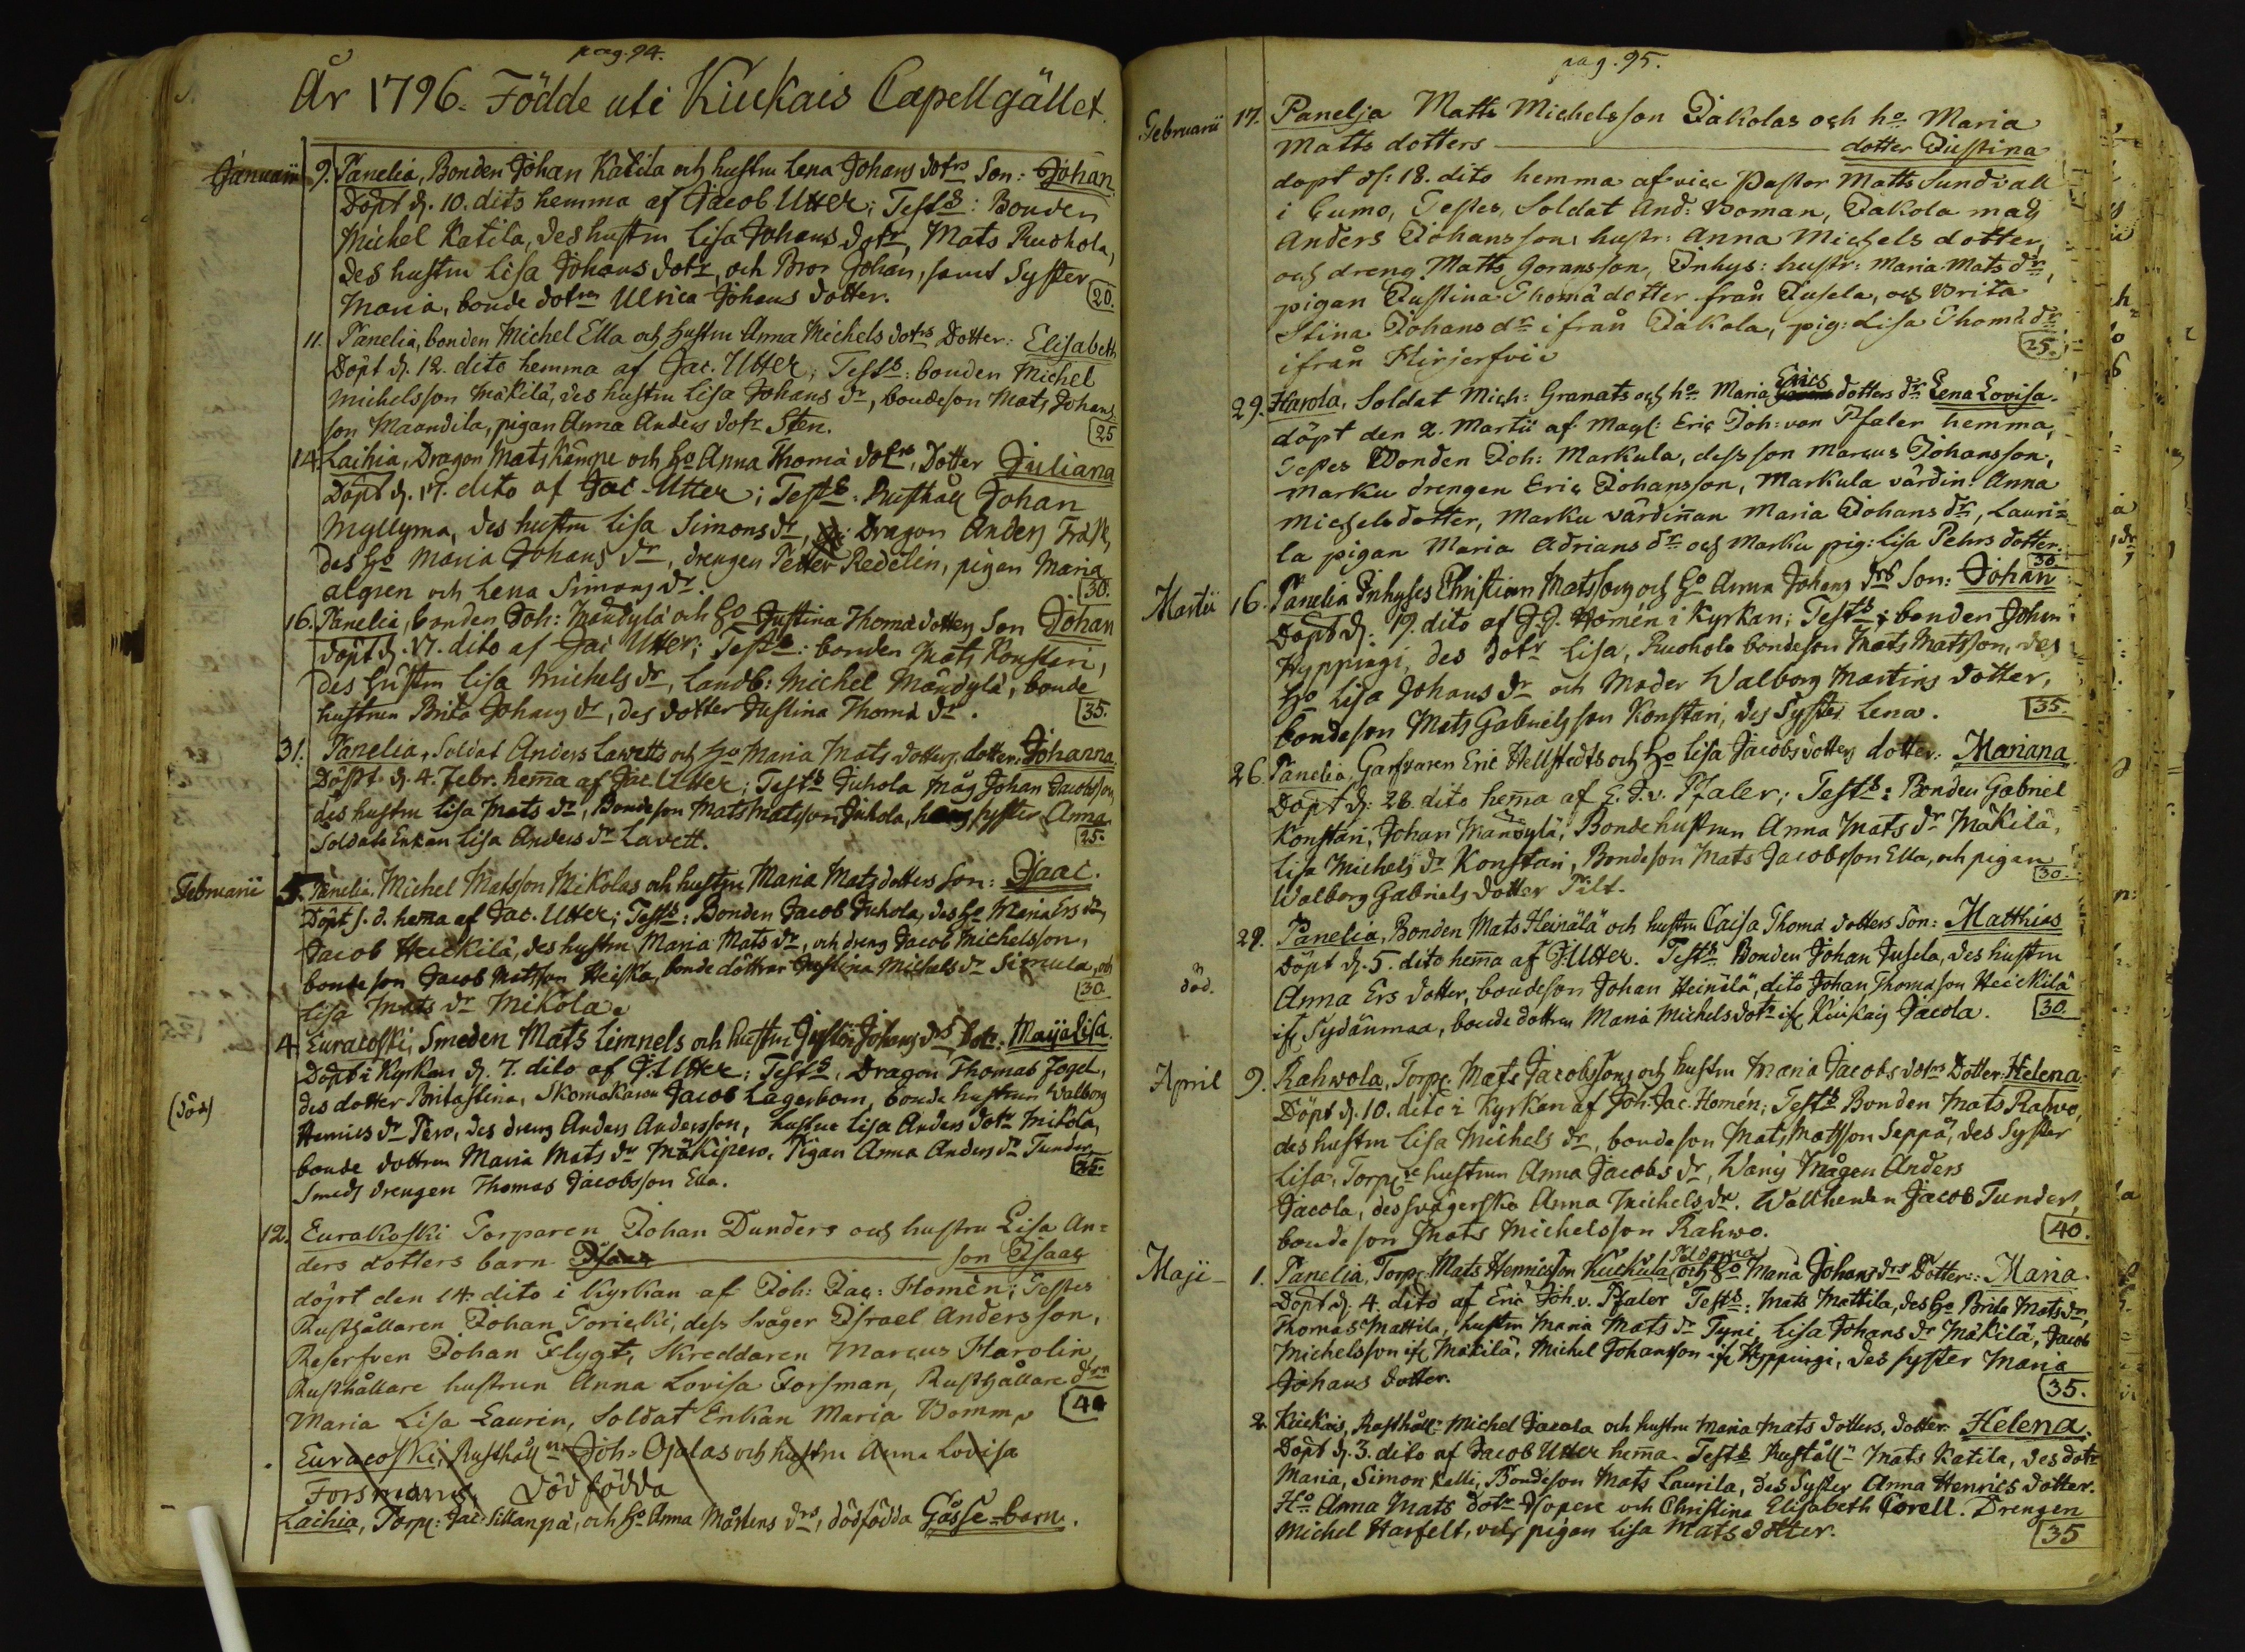 pag. 94.
År 1796. Födde uti Kiukais Capellgället.
Januarii 9. Panelia, Bonden Johan Katila och hustru Lena Johans dotrs Son: Johan.
Döpt d. 10. dito hemma af Jacob Utter; Tests: Bonden
Michel Katila, des hustru Lisa Johans dotr, Mats Ruohola,
des hustru Lisa Johans dotr, och Bror Johan, samt Syster
Maria, bonde dotren Ulrica Johans dotter. 20.
11. Panelia, bonden Michel Ella och hustru Anna Michels dotrs Dotter: Elisabeth
Döpt d. 12. dito hemma af Jac. Utter; Tests: bonden Michel
Michelsson Mäkilä, des hustru Lisa Johans dr, bondeson Mats Johans
son Maandila, pigan Anna Anders dotr Sten. 25
14. Laihia, Dragon Mats Kämpe och ho Anna Thomä dotrs, Dotter Juliana
Döpt d. 17. dito af Jac Utter; Tests: Rusthåll Johan
Myllyma, des hustru Lisa Simons dr, Dragon Anders Frask,
des ho Maria Johans dr, drengen Petter Redelin, pigan Maria
algren och Lena Simons dr. 30.
16. Panelia, bonden Joh: Mandylä och ho Justina Thomä dotters Son Johan
döpt d. 17. dito af Jac Utter; Tests: bonden Mats Konstari,
des hustru Lisa Michels dr, Landb: Michel Mandylä, bonde
hustrun Brita Johans dr, des dotter Justina Thomä dr. 35.
31. Panelia, Soldat Anders Lawetts och ho Maria Mats dotters dotter: Johanna.
Döpt d. 4. Febr. hemma af Jac. Utter; Tests Juhola Måg Johan Jacobsson,
des hustru Lisa Mats dr, Bondeson Mats Matsson Juhola, hans syster Anna.
Soldats Enkan Lisa Anders dr Lavett. 25.
Februarii 5. Panelia. Michel Matsson Mikolas och hustru Maria Mats dotters Son: Isaac.
Döpt s. d. hemma af Jac. Utter; Tests: Bonden Jacob Juhola, des ho Maria Ers dr,
Jacob Heickilä, des hustru Maria Mats dr, och dreng Jacob Michelsson,
bondeson Jacob Matsson Heiska, bonde döttrar Justina Michels dr Simula, och
Lisa Mats dr Mikola. 30
4 Euracoski, Smeden Mats Limnels och hustru Justin Johans drs Dotr: Maijalisa.
(död) Döpt i Kyrkan d. 7. dito af J. Utter; Tests, Dragon Thomas Fogel,
des dotter Britastina, Skomakaren Jacob Lagerbom, bonde hustrun Walborg
Henrics dr Pero, des dreng Anders Andersson, hustru Lisa Anders dotr Mikola,
bonde dottren Maria Mats dr Mäkipero. Pigan Anna Anders dr Tunder,
Smeds drengen Thomas Jacobsson Ella. 35.
12. Eurakoski Torparen Johan Dunders och hustru Lisa An=
ders dotters barn son Isaac
döpt den 14 dito i kyrkan af Joh: Jac: Homén; Testes
Rusthållaren Johan Toricki, dess Svåger Israel Andersson,
Reserfven Johan Flygt, Skreddaren Marcus Harolin,
Rusthållare hustrun Anna Lovisa Forsman, Rusthållare drn
Maria Lisa Laurin, Soldat Enkan Maria Bomm. 40
Euracoski, Rusthålln Joh: Ojalas och hustru Anna Lovisa
Forsmans, dödfödda
Laihia, Torp: Jac Sillanpä, och ho Anna Mårtens drs, dödfödda Gåsse=barn.
pag. 95.
Februarii 17. Panelja Matts Michelsson Jakolas och ho Maria
Matts dotters dotter Justina
döpt d: 18. dito hemma af vice Pastor Matts Sundvall
i Eumo, Testes, Soldat And: Boman, Jakola måg
Anders Johansson, hustr: Anna Michels dotter,
och dreng Matts Goransson, Inhys: hustr: Maria Mats dr,
pigan Justina Thomä dotter från Jusela, och Brita
Stina Johans dr ifrån Jakola, pig: Lisa Thomä dr
ifrån Hirjerfvie 25.
29. Harola, Soldat Mich: Granats och ho Maria Erics dotters dr Lena Lovisa.
döpt den 2. Martii af Mag: Eric Joh: von Pfaler hemma,
Testes Bonden Joh: Markula, dess son Marcus Johansson,
Marku drengen Eric Johansson, Markula värdin: Anna
Michelsdotter, Marku värdinnan Maria Johans dr, Lauri=
la pigan Maria Adrians dr och Marku pig: Lisa Pehrs dotter. 30
Martii 16. Panelia Inhyses Christian Matssons och ho Anna Johans drs Son: Johan
Döpt d. 19. dito af J. J. Homén i Kyrkan; Tests; bonden Johan
Hyppingi, des dotr Lisa, Ruohola bondeson Mats Matsson, des
ho Lisa Johans dr och Moder Walborg Martins dotter,
bondeson Mats Gabrielsson Konstari, des Syster Lena. 35.
26. Panelia, Garfvaren Eric Hellstedts och ho Lisa Jacobs dotters dotter: Mariana
Döpt d. 28. dito hemma af E. J. v. Pfaler; Tests: Bonden Gabriel
Konstari, Johan Mandylä, Bonde hustrun Anna Mats dr Mäkilä,
Lisa Michels dr Konstari, Bondeson Mats Jacobsson Ella, och pigan
Walborg Gabriels dotter Pilt. 30.
29. Panelia, Bonden Mats Heinälä och hustru Caisa Thomä dotters Son: Matthias
död. Döpt d. 5. dito hemma af J. Utter. Tests Bonden Johan Jusela, des hustru
Anna Ers dotter, bondeson Johan Heinälä, dito Johan Thomasson Heickilä
ifr Sydänmaa, bonde dottren Maria Michels dotr ifr Kiukais Jacola. 30.
April 9. Rahwola, Torp. Mats Jacobssons och hustru Maria Jacobs dotrs Dotter: Helena.
Döpt d. 10. dito i Kyrkan af Joh: Jac. Homén; Tests Bonden Mats Rahwo,
des hustru Lisa Michels dr, bondeson Mats Mattsson Seppä, des Syster
Lisa, Torp hustrun Anna Jacobs dr, Warij Mågen Anders
Jacola, des svägerska Anna Michels dr. Wallherden Jacob Tunder,
bondeson Mats Michelsson Rahwo. 40.
Maji 1. Panelia, Torp. Mats Henricsson Kuckula och ho Maria Johans drs Dotter: Maria.
Döpt d. 4. dito af Eric Joh. v. Pfaler Tests: Mats Mattila, des ho Brita Mats dr,
Thomas Mattila, hustru Maria Mats dr Tyni, Lisa Johans dr Mäkilä, Jacob
Michelsson ifr Mäkilä, Michel Johansson ifr Hyppingi, des syster Maria
Johans dotter. 35.
2. Kiukais, Rusthåll: Michel Jacola och hustru Maria Mats dotters, dotter Helena.
Döpt d. 3. dito af Jacob Utter hemma. Tests Rusthåll: Mats Katila, des dotr
Maria, Simon Kalli, Bondeson Mats Laurila, des Syster Anna Henrics dotter.
Ho Anna Mats dotr Isopere och Christina Elisabeth Corell. Drengen
Michel Harfelt, och pigan Lisa Mats dotter. 35